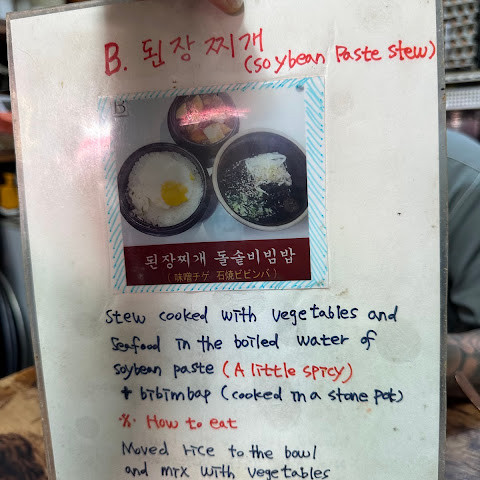 B. 된장찌개
(soybean Paste stew)
B
된장찌개 돌솥비빔밥
(味噌チゲ/石焼ビビンバ)
Stew cooked with vegetables and
seafood in the boiled water of
soybean paste (A little spicy)
+ bibimbap (cooked in a stone pot)
※. How to eat
Moved rice to the bowl
and mix with vegetables